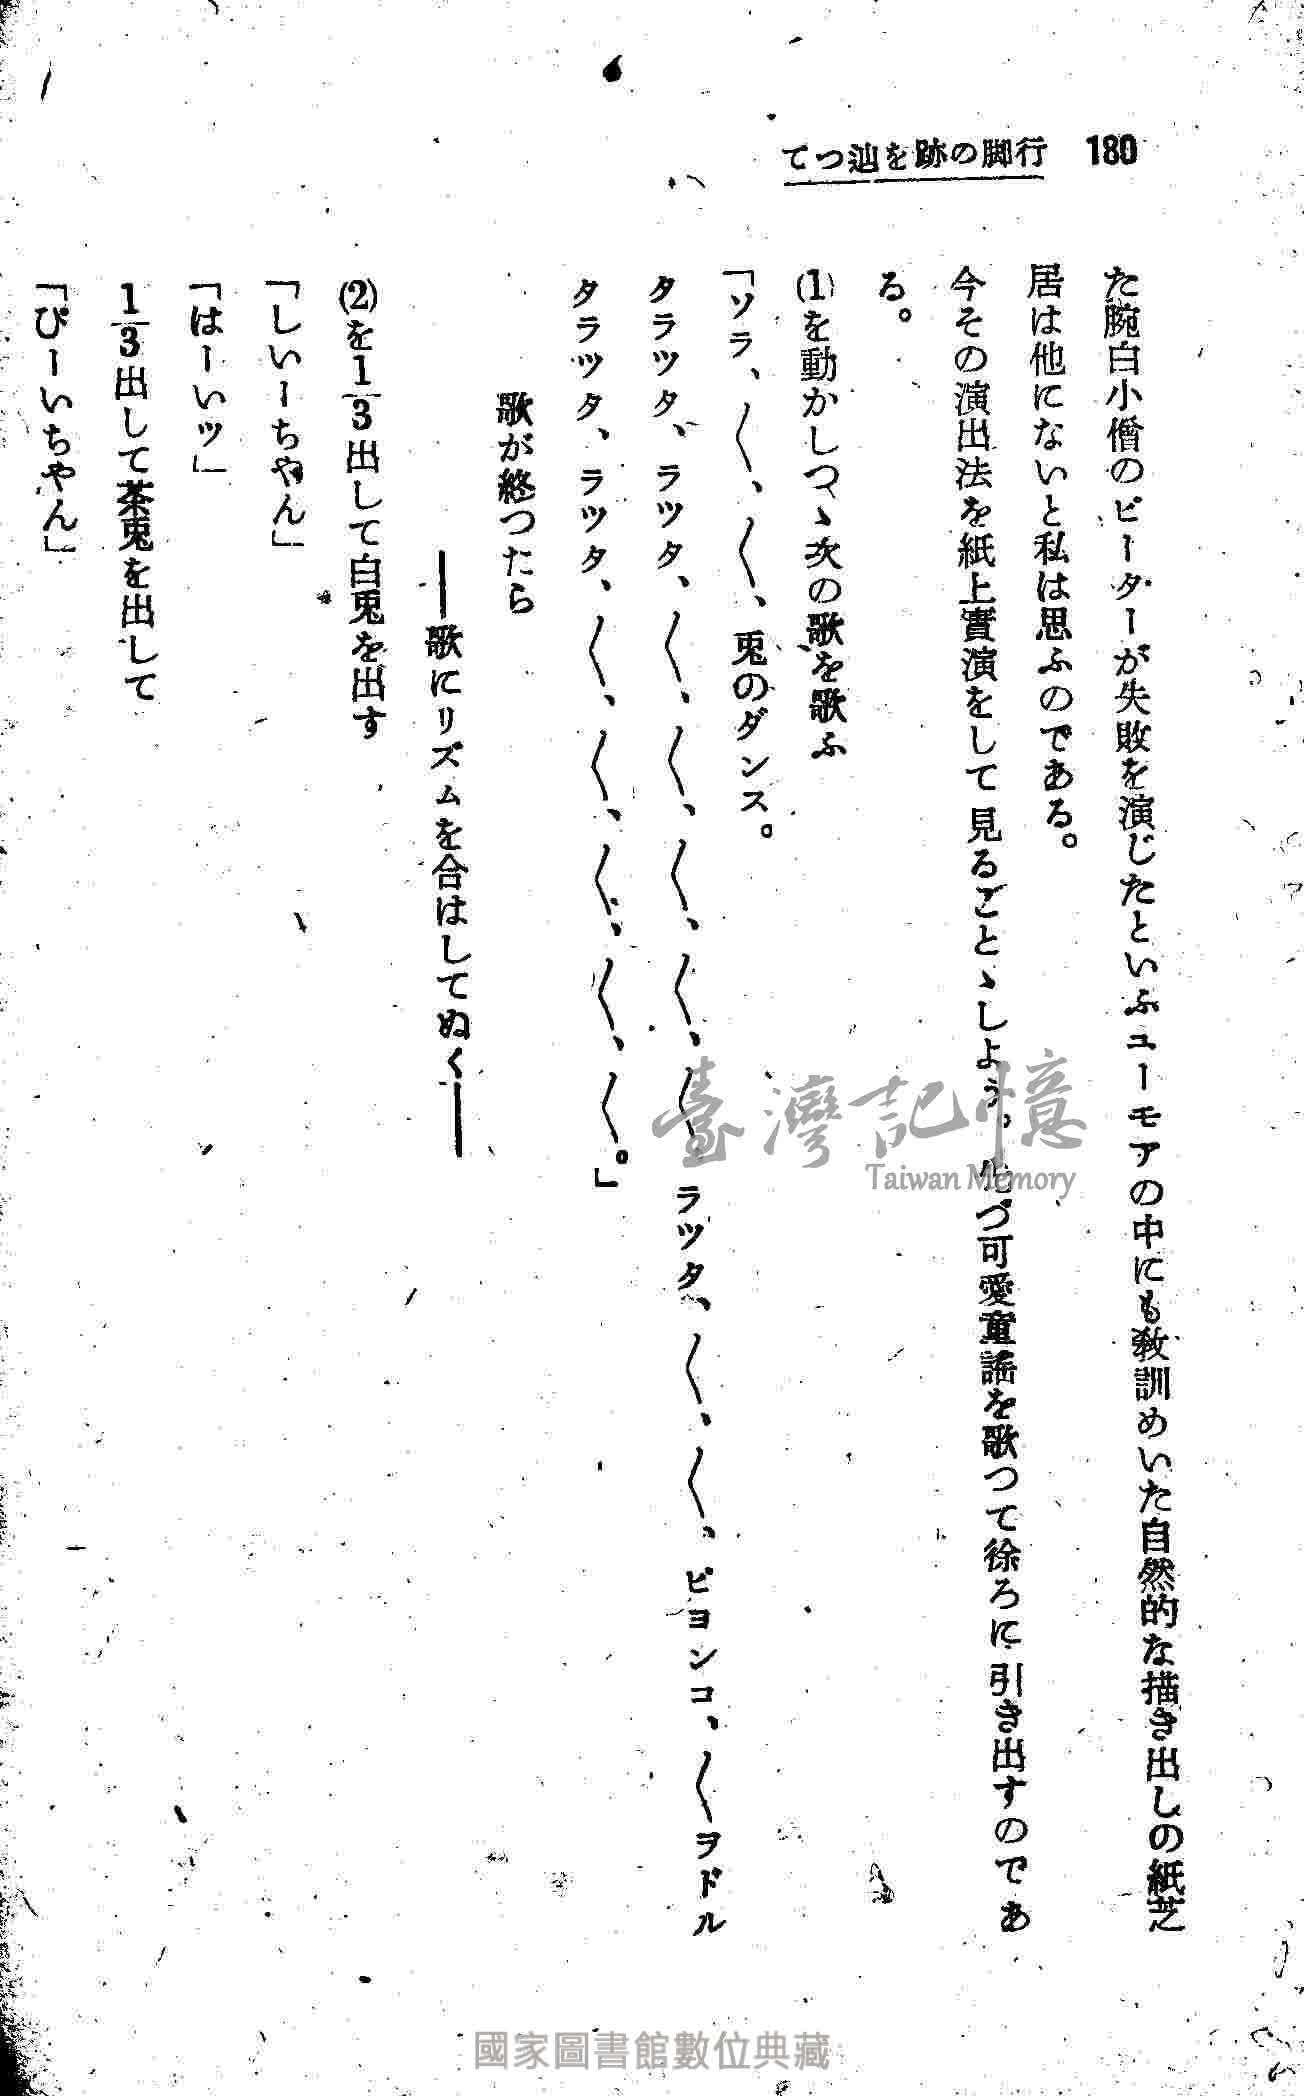 てつ辿を跡の脚行 180
た腕白小僧のピーターが失敗を演じたといふユーモアの中にも敎訓めいた自然的な描き出しの紙芝
居は他にないと私は思ふのである。
今その演出法を紙上實演をして見ることゝしよう。先づ可愛童謠を歌つて徐ろに引き出すのであ
る。
(1)を動かしつゝ次の歌を歌ふ
「ソラ、〱、〱、兎のダンス。
タラツタ、ラツタ、〱、〱、〱、〱、〱、ラツタ、〱、〱、ピヨンコ、〱ヲドル
タラツタ、ラツタ、〱、〱、〱、〱、〱。」
歌が終つたら
――歌にリズムを合はしてぬく――
(2)を1/3出して白兎を出す
「しいーちやん」
「はーいッ」
1/3出して茶兎を出して
「ぴーいちやん」
臺灣記憶
Taiwan Memory
國家圖書館數位典藏